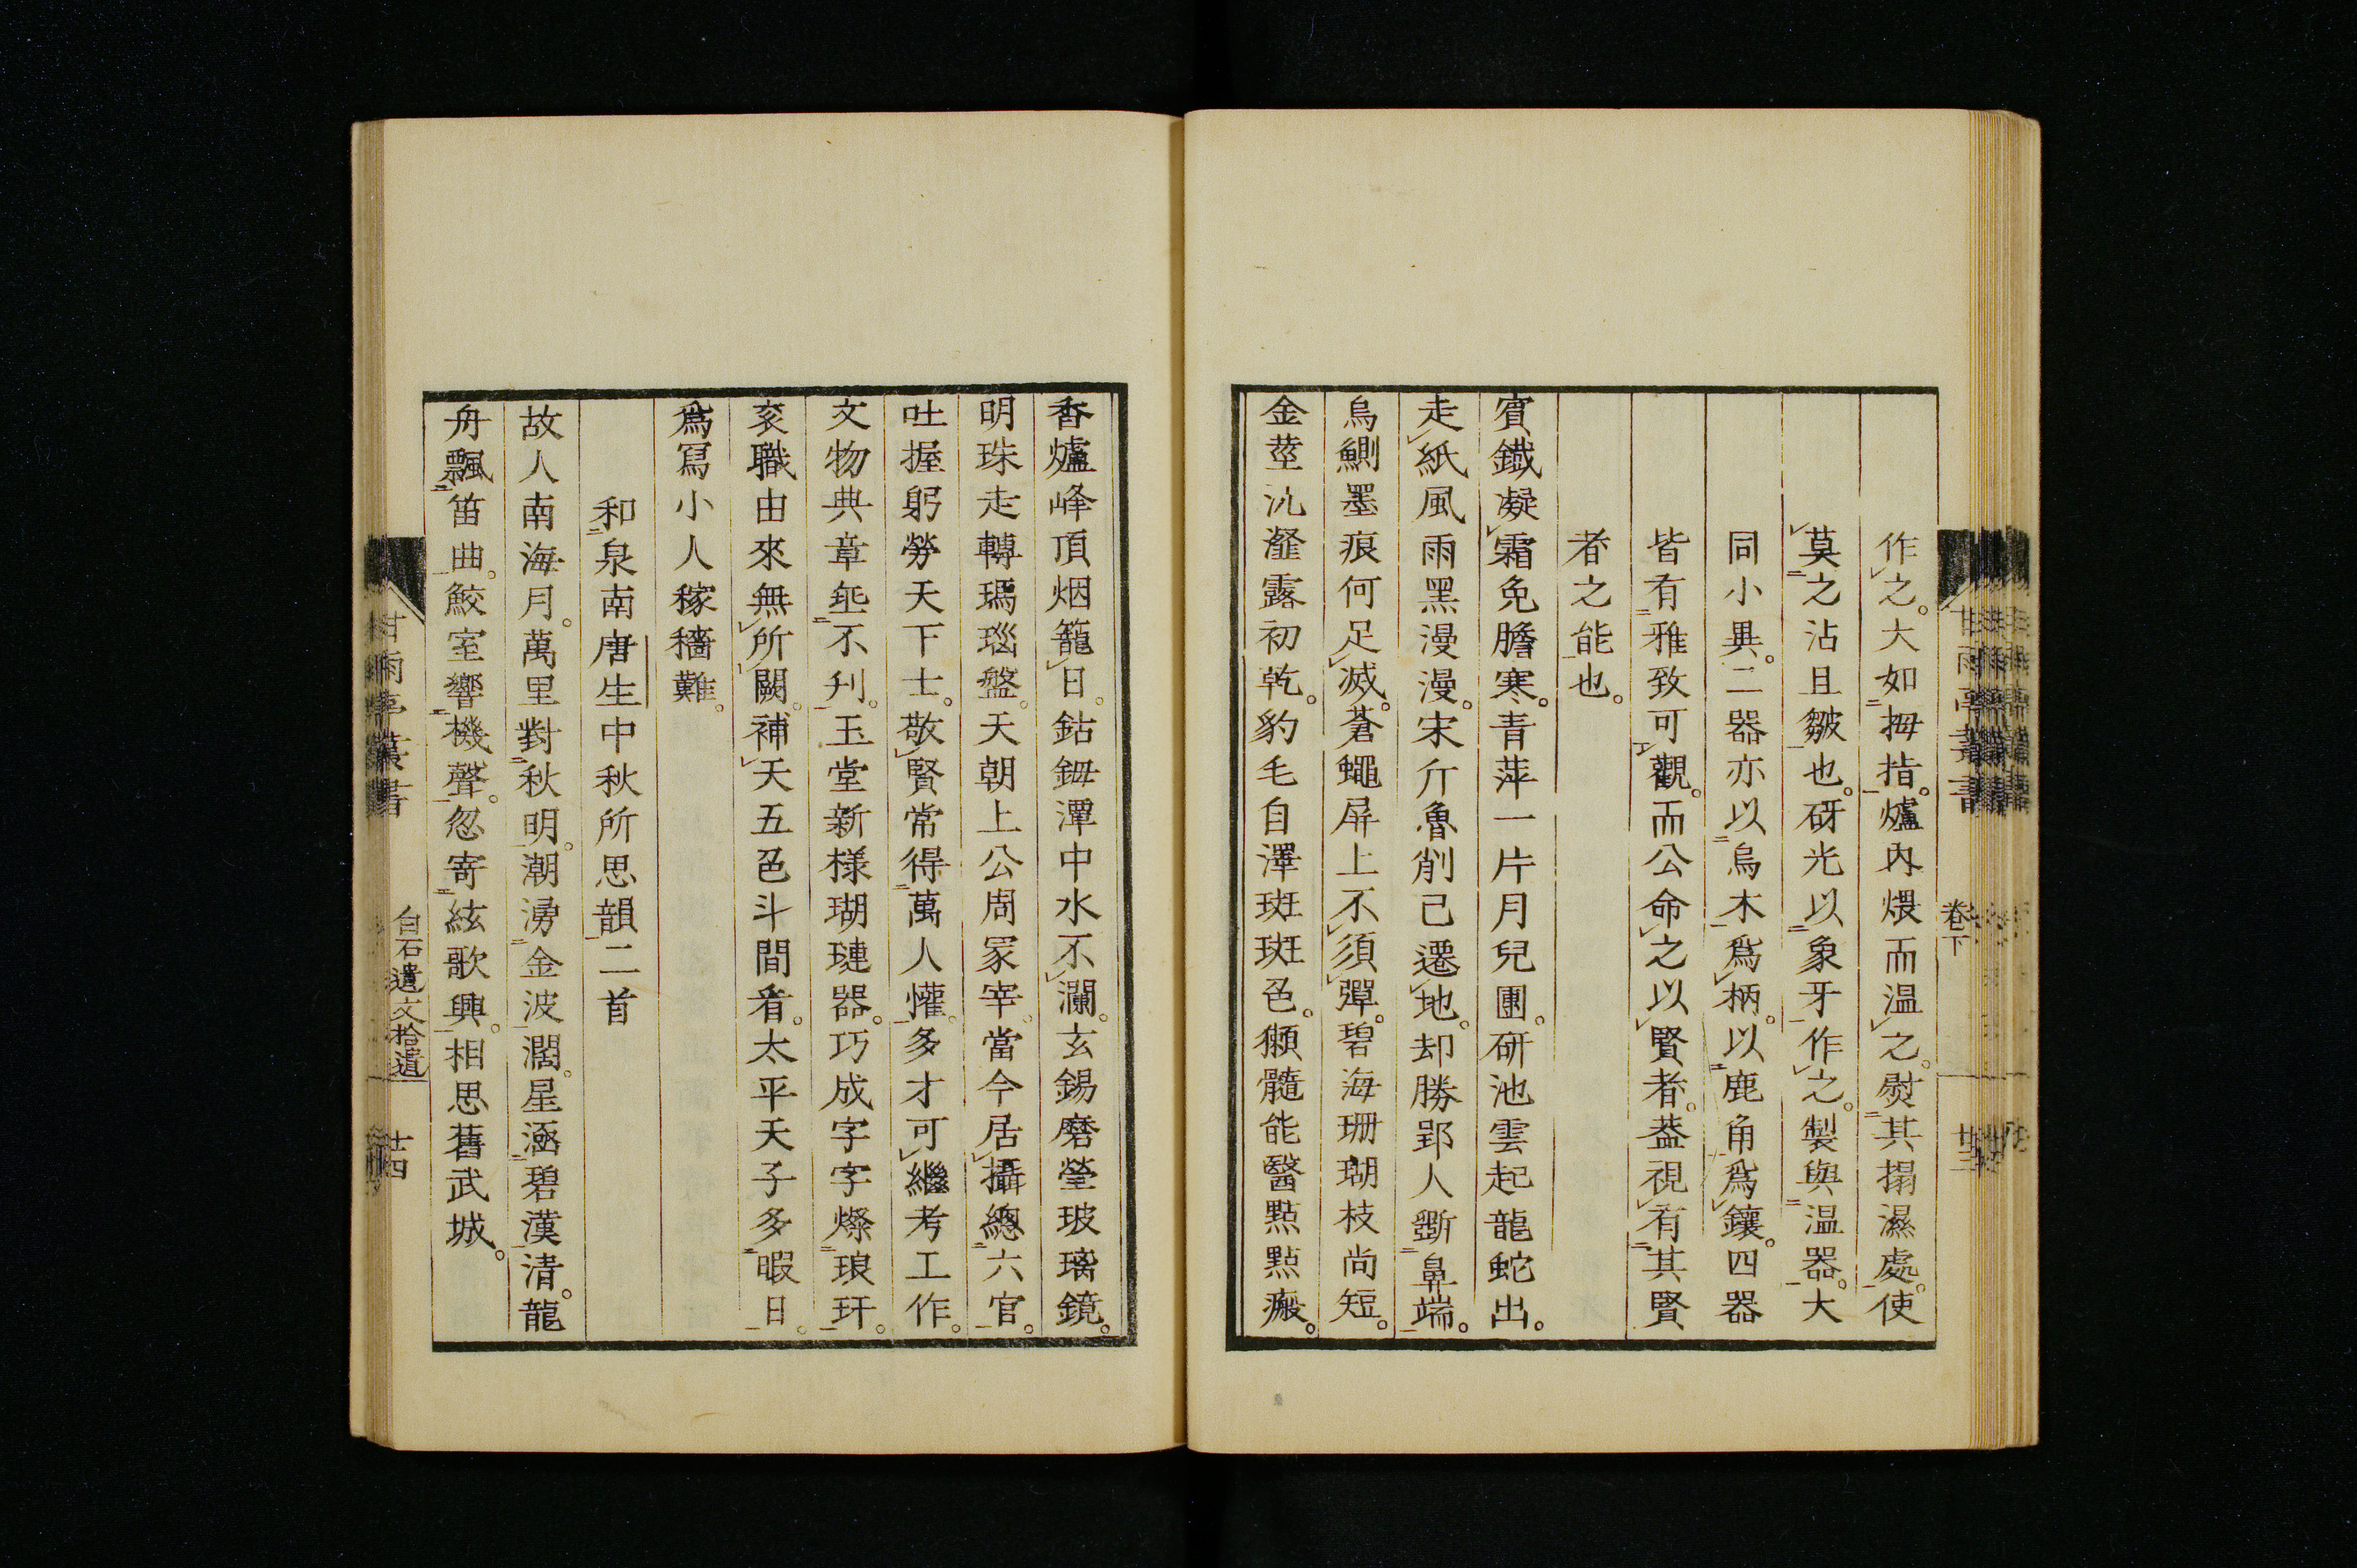 作之。大如拇指。爐內煨而溫之。熨其搨濕處。使
莫之沾且皺也。砑光以象牙作之。製與溫器。大
同小異。二器亦以烏木爲柄。以鹿角爲鑲。四器
皆有雅致可觀。而公命之以賢者。葢視有其賢
者之能也。
賓鐵凝霜兔膽寒。青萍一片月兒團。研池雲起龍蛇出。
走紙風雨黑漫漫。宋斤魯削已遷地。却勝郢人斵鼻端。
烏鰂墨痕何足滅。蒼蠅屏上不須彈。碧海珊瑚枝尚短。
金莖沆瀣露初乾。豹毛自澤斑斑色。獺髓能醫點點瘢。
卷下
香爐峰頂烟籠日。鈷鉧潭中水不瀾。玄錫磨瑩玻璃鏡。
明珠走轉瑪瑙盤。天朝上公周冢宰。當今居攝總六官。
吐握躬勞天下士。敬賢常得萬人懽。多才可繼考工作。
文物典章垂不刋。玉堂新樣瑚璉器。巧成字字燦琅玕。
袞職由來無所闕。補天五色斗間看。太平天子多暇日。
爲寫小人稼穡難。
和泉南唐生中秋所思韻二首
故人南海月。萬里對秋明。潮湧金波濶。星涵碧漢清。龍
舟飄笛曲。鮫室響機聲。忽寄絃歌興。相思舊武城。
甘雨亭叢書
白石遺文拾遺
廿四